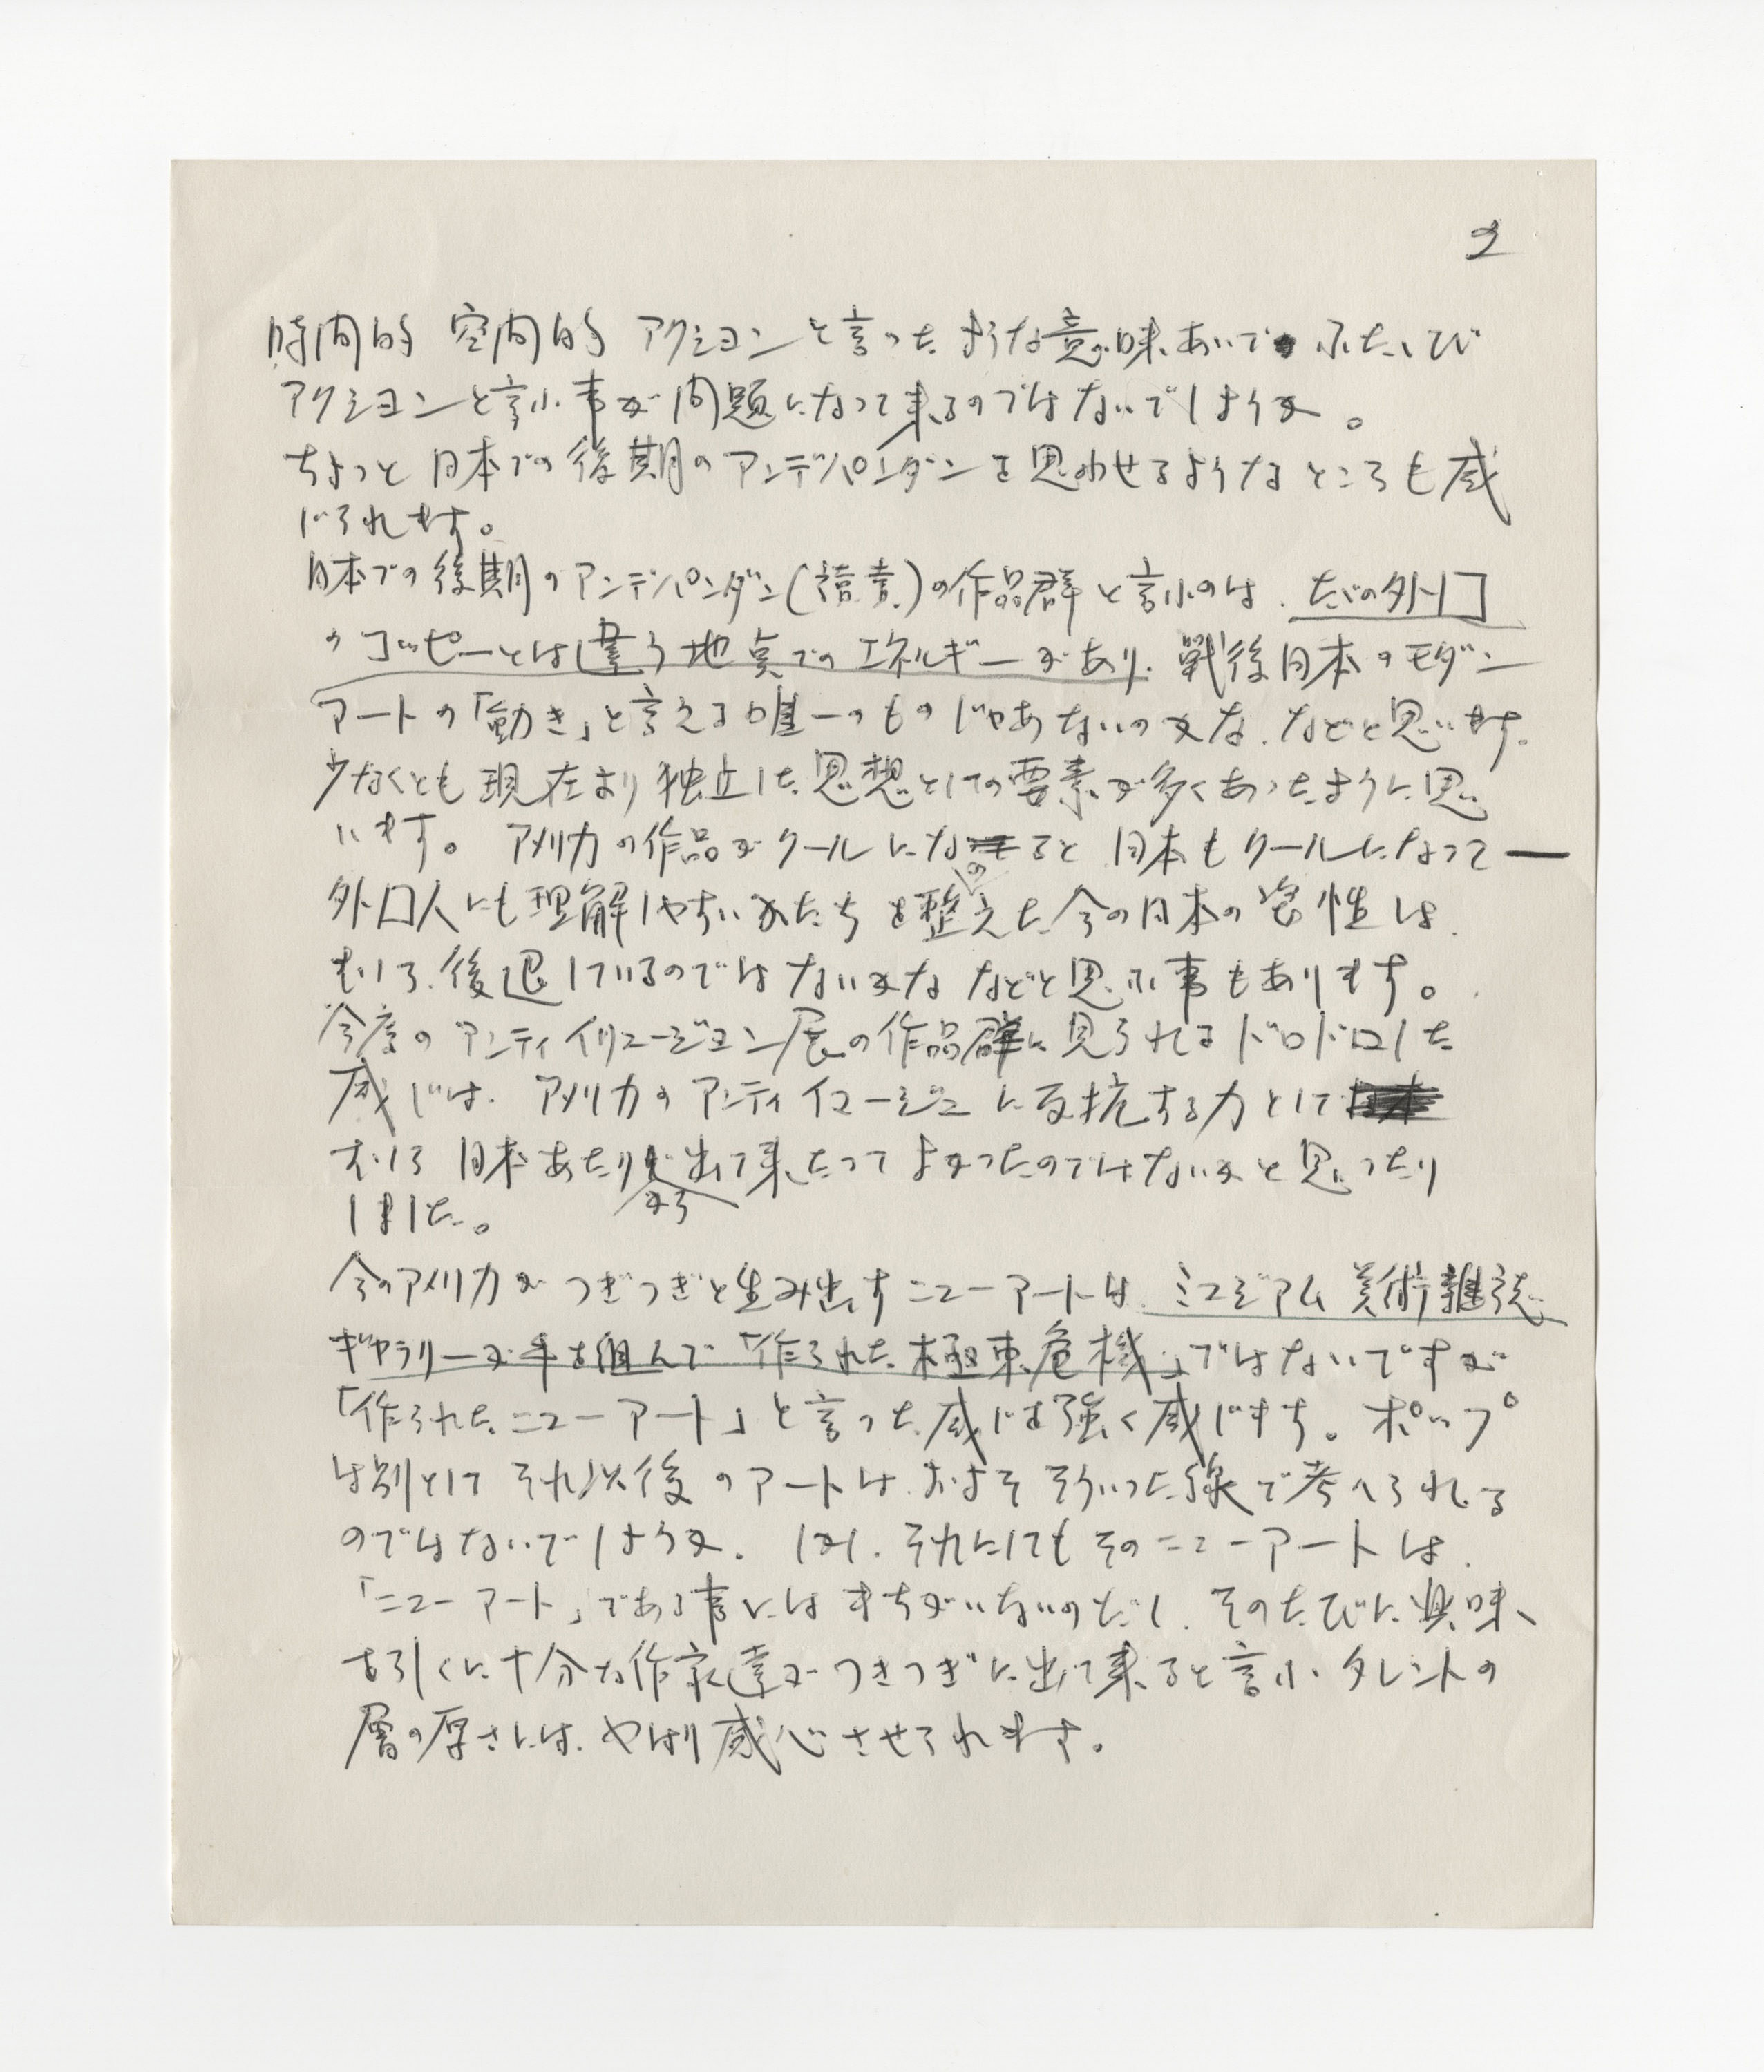 2
時間的 空間的 アクションと言ったような意味あいで ふたゝび
アクションと言ふ事が問題になって来るのではないでしょうか。
ちょっと日本での後期のアンデパンダンを思わせるようなところも感
じられます。
日本での後期のアンデパンダン(読売)の作品群と言ふのは、ただの外口
のコッピーとは違う地点でのエネルギーがあり、戦後日本のモダン
アートの「動き」と言える唯一のものじゃあないのかな、などと思います。
少なくとも現在より独立した思想としての要素が多くあったように思
います。 アメリカの作品がクールになると 日本もクールになって ー
外口人にも理解しやすいかたちを整えた今の日本の 性は、
むしろ、後退しているのではないかな などと思ふ事もあります。
今度のアンティイリュージョン展の作品群に見られるドロドロした
感じは、アメリカのアンティイマージュに反抗する力として
むしろ日本あたりから出て来たってよかったのではないかと思ったり
しました。
今のアメリカがつぎつぎと生み出すニューアートは、ミュジアム 美術雑誌
ギャラリーが手を組んで「作られた極東危機」ではないですが
「作られたニューアート」と言った感じを強く感じます。ポップ
は別として それ以後のアートは、およそそういった線で考へられる
のではないでしょうか。しかし、それにしてもそのニューアートは、
「ニューアート」である事にはまちがいないのだし、そのたびに興味
を引くに十分な作家達がつぎつぎに出て来ると言ふ タレントの
層の厚さには、やはり感心させられます。